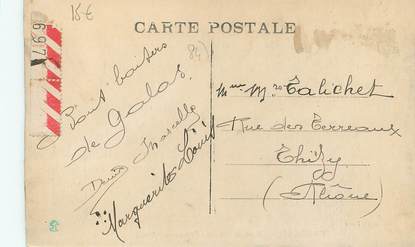 15€
CARTE POSTALE
84
Bons baisers
de Galas.
Denis Marcelle
Marguerite Louis
Mme Talichet
Rue des Terreaux
Thizy
(Rhône)